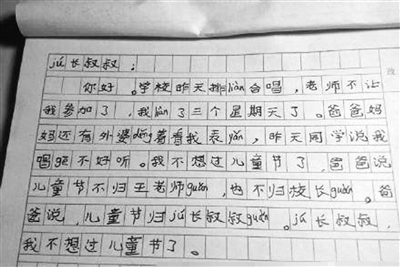 jú长叔叔：
你好。学校昨天排liàn合唱，老师不让
我参加了，我liàn了三个星期天了。爸爸妈
妈还有外婆děng着看我表yǎn，昨天同学说我
唱de不好听。我不想过儿童节了，爸爸说
儿童节不归王老师guǎn，也不归校长guǎn。爸
爸说，儿童节归jú长叔叔guǎn。jú长叔叔，
我不想过儿童节了。